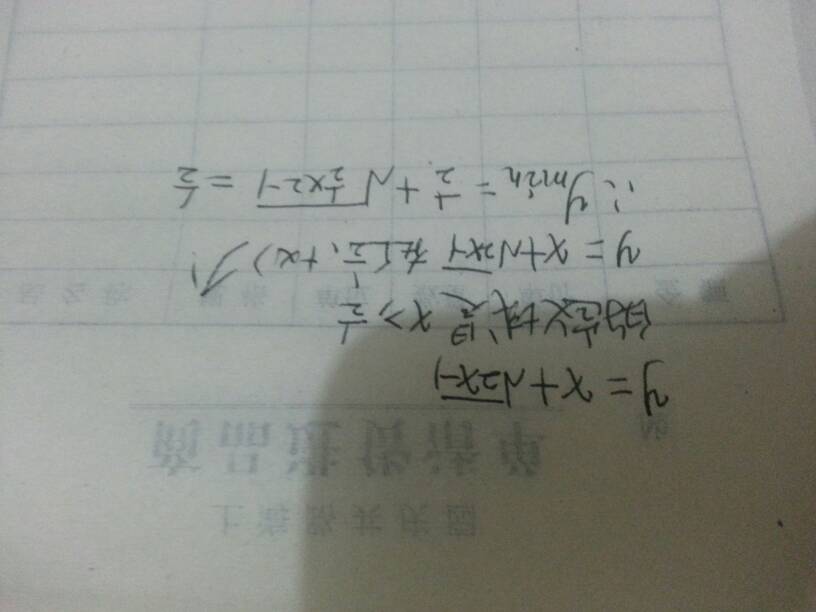 商品进货清单
y = x + √(2x-1)
的定义域是 x ≥ 1/2
y = x + √(2x-1) 在 [1/2, +∞) ↗
∴ ymin = 1/2 + √(1/2×2-1) = 1/2